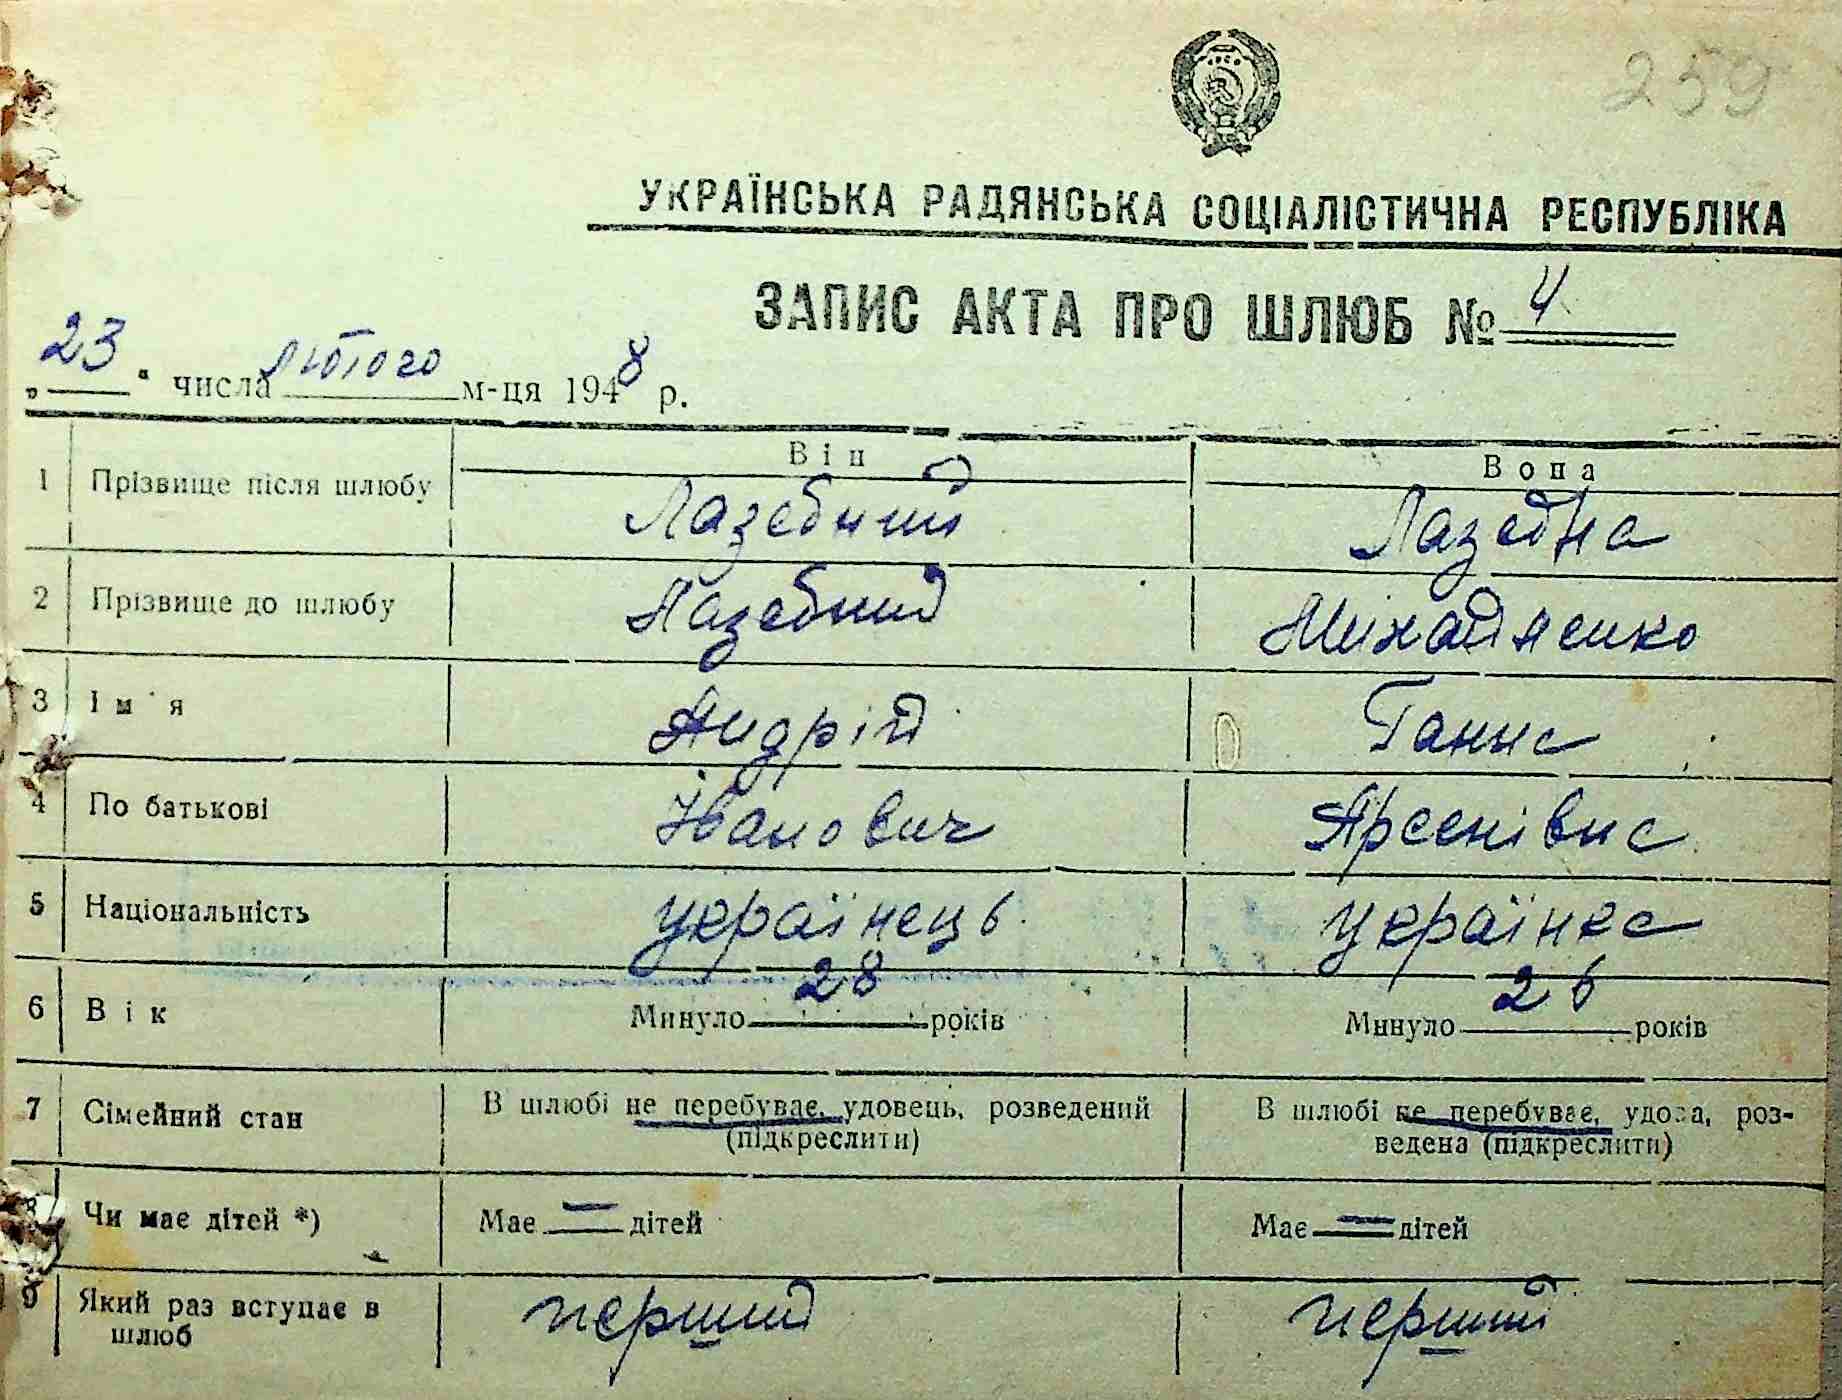 259
УКРАЇНСЬКА РАДЯНСЬКА СОЦІАЛІСТИЧНА РЕСПУБЛІКА
ЗАПИС АКТА ПРО ШЛЮБ № 4
„23“ числа лютого м-ця 1948 р.
Він Вона
1 Прізвище після шлюбу Лазебний Лазебна
2 Прізвище до шлюбу Лазебний Михайленко
3 Ім'я Андрій Ганна
4 По батькові Іванович Арсенівна
5 Національність українець українка
6 Вік Минуло 28 років Минуло 26 років
7 Сімейний стан В шлюбі не перебуває, удовець, розведений В шлюбі не перебуває, удова, роз-
(підкреслити) ведена (підкреслити)
8 Чи має дітей *) Має — дітей Має — дітей
9 Який раз вступає в перший перший
шлюб